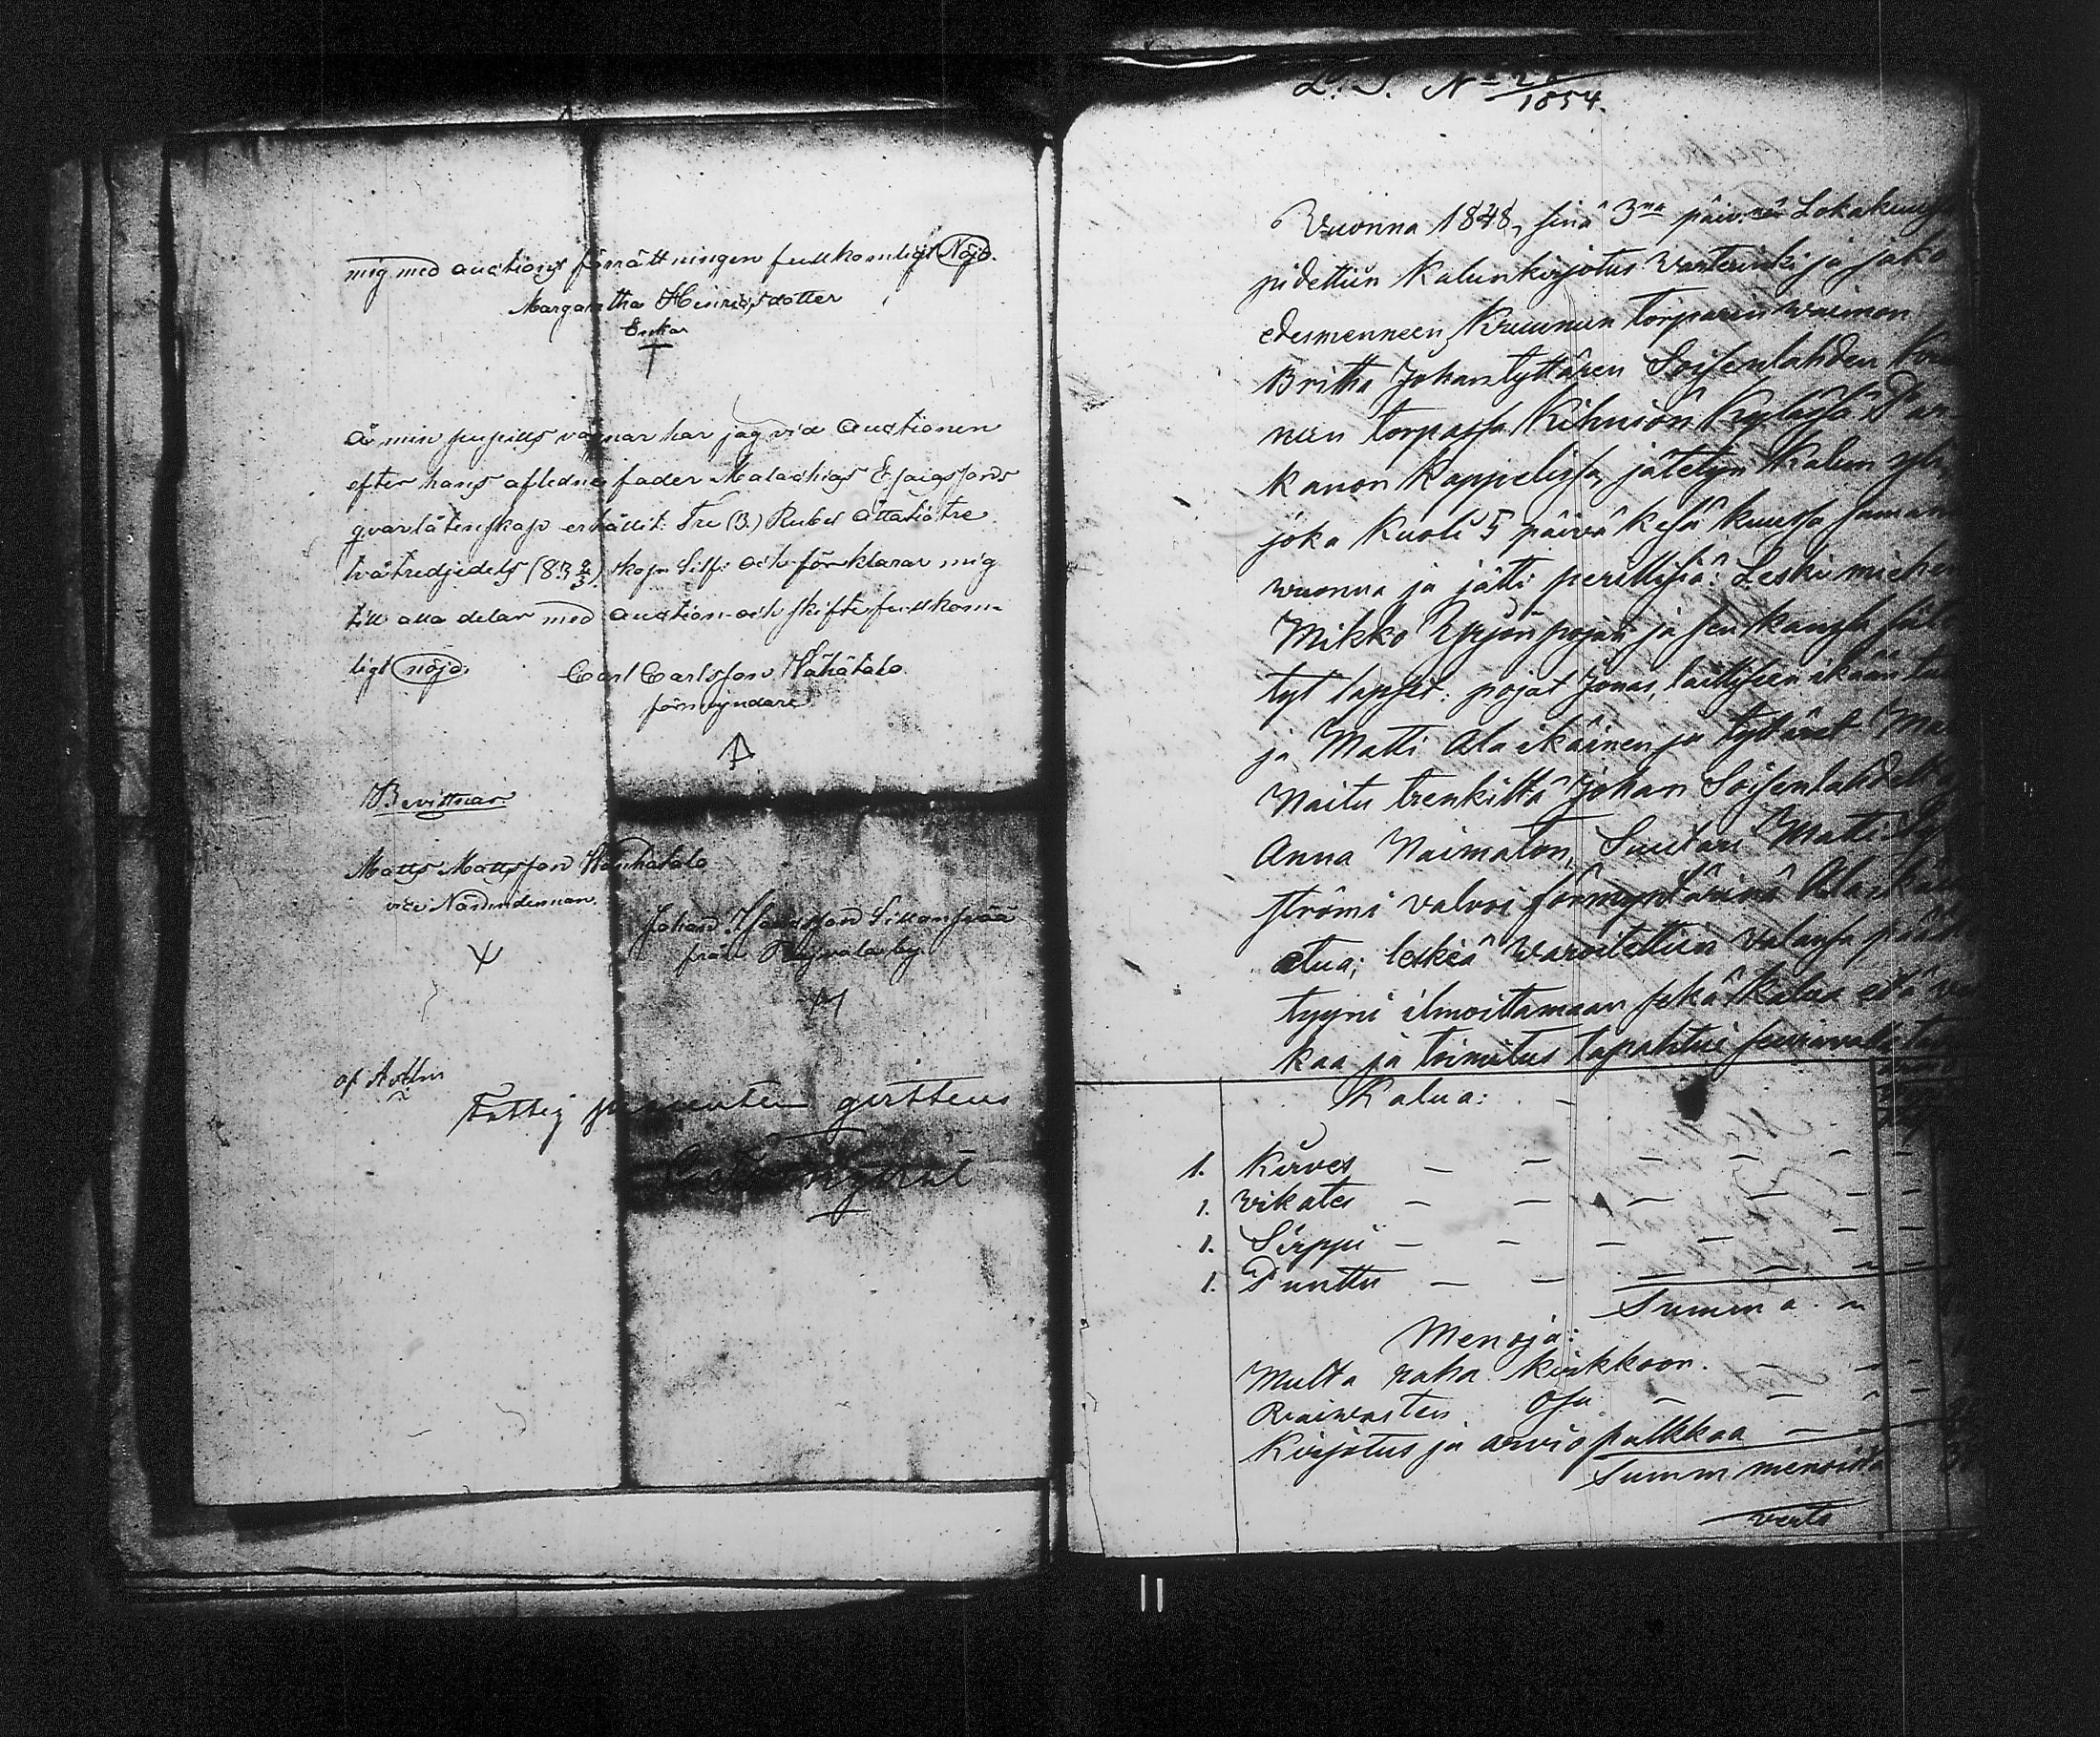 mig med auctions förrättningen fullkomligt Nöjd.
Margaretha Hinricsdotter
Enka
Å min pupills vagnar har jag vid Auctionen
efter hans aflidne fader Malachias Esaiassons
qvarlåtenskap erhållit: Tre (3.) Rubel Åttatiotre
tvåtredjedels (83 2/3) kop. Silf: och förklarar mig
till alla delar med Auction och skifte fullkom-
ligt nöjd.
Carl Carlsson Vähätalo.
förmyndare
Bevittnar:
Matts Mattsson Wanhatalo
vice Nämndeman.
Johan
från by
Fattig procenten
L. S. No
1854.
Vuonna 1848, sinä 3na päivänä Lokakuussa
pidettiin Kalunkirjotus Varterinki ja jako
edesmenneen Kruunun torparin vaimon
Britha Johantyttären Soisenlahden
nun torpassa Kihniön Kylässä Par-
kanon Kappelissa, jätetyn Kalun
joka Kuoli 5 päivä Kesä kuussa saman
vuonna ja jätti perillisiä: Leski miehen
Mikko Yrjön pojan ja sen kanssa
tyt lapset: pojat Jonas, laillisen ikään
ja Matti Alaikäinen ja tyttäret
Naitu trenkiltä Johan Soisenlahdelta
Anna Naimaton, Suutari Matti
strömi valvoi förmyndärinä Alaikäis
etua; leskeä varoitettiin valansa
tyyni ilmoittamaan sekä Kalua
kaa ja toimitus tapahtui seuraavalla
Kalua:
1. Kirves
1. Vikates
1. Sirppi
1. Punttu
Summa.
Menoja:
Multa raha kirkkoon.
Vaivasten Osa
Kirjotus ja arvio palkkaa
Summ menoista
verte